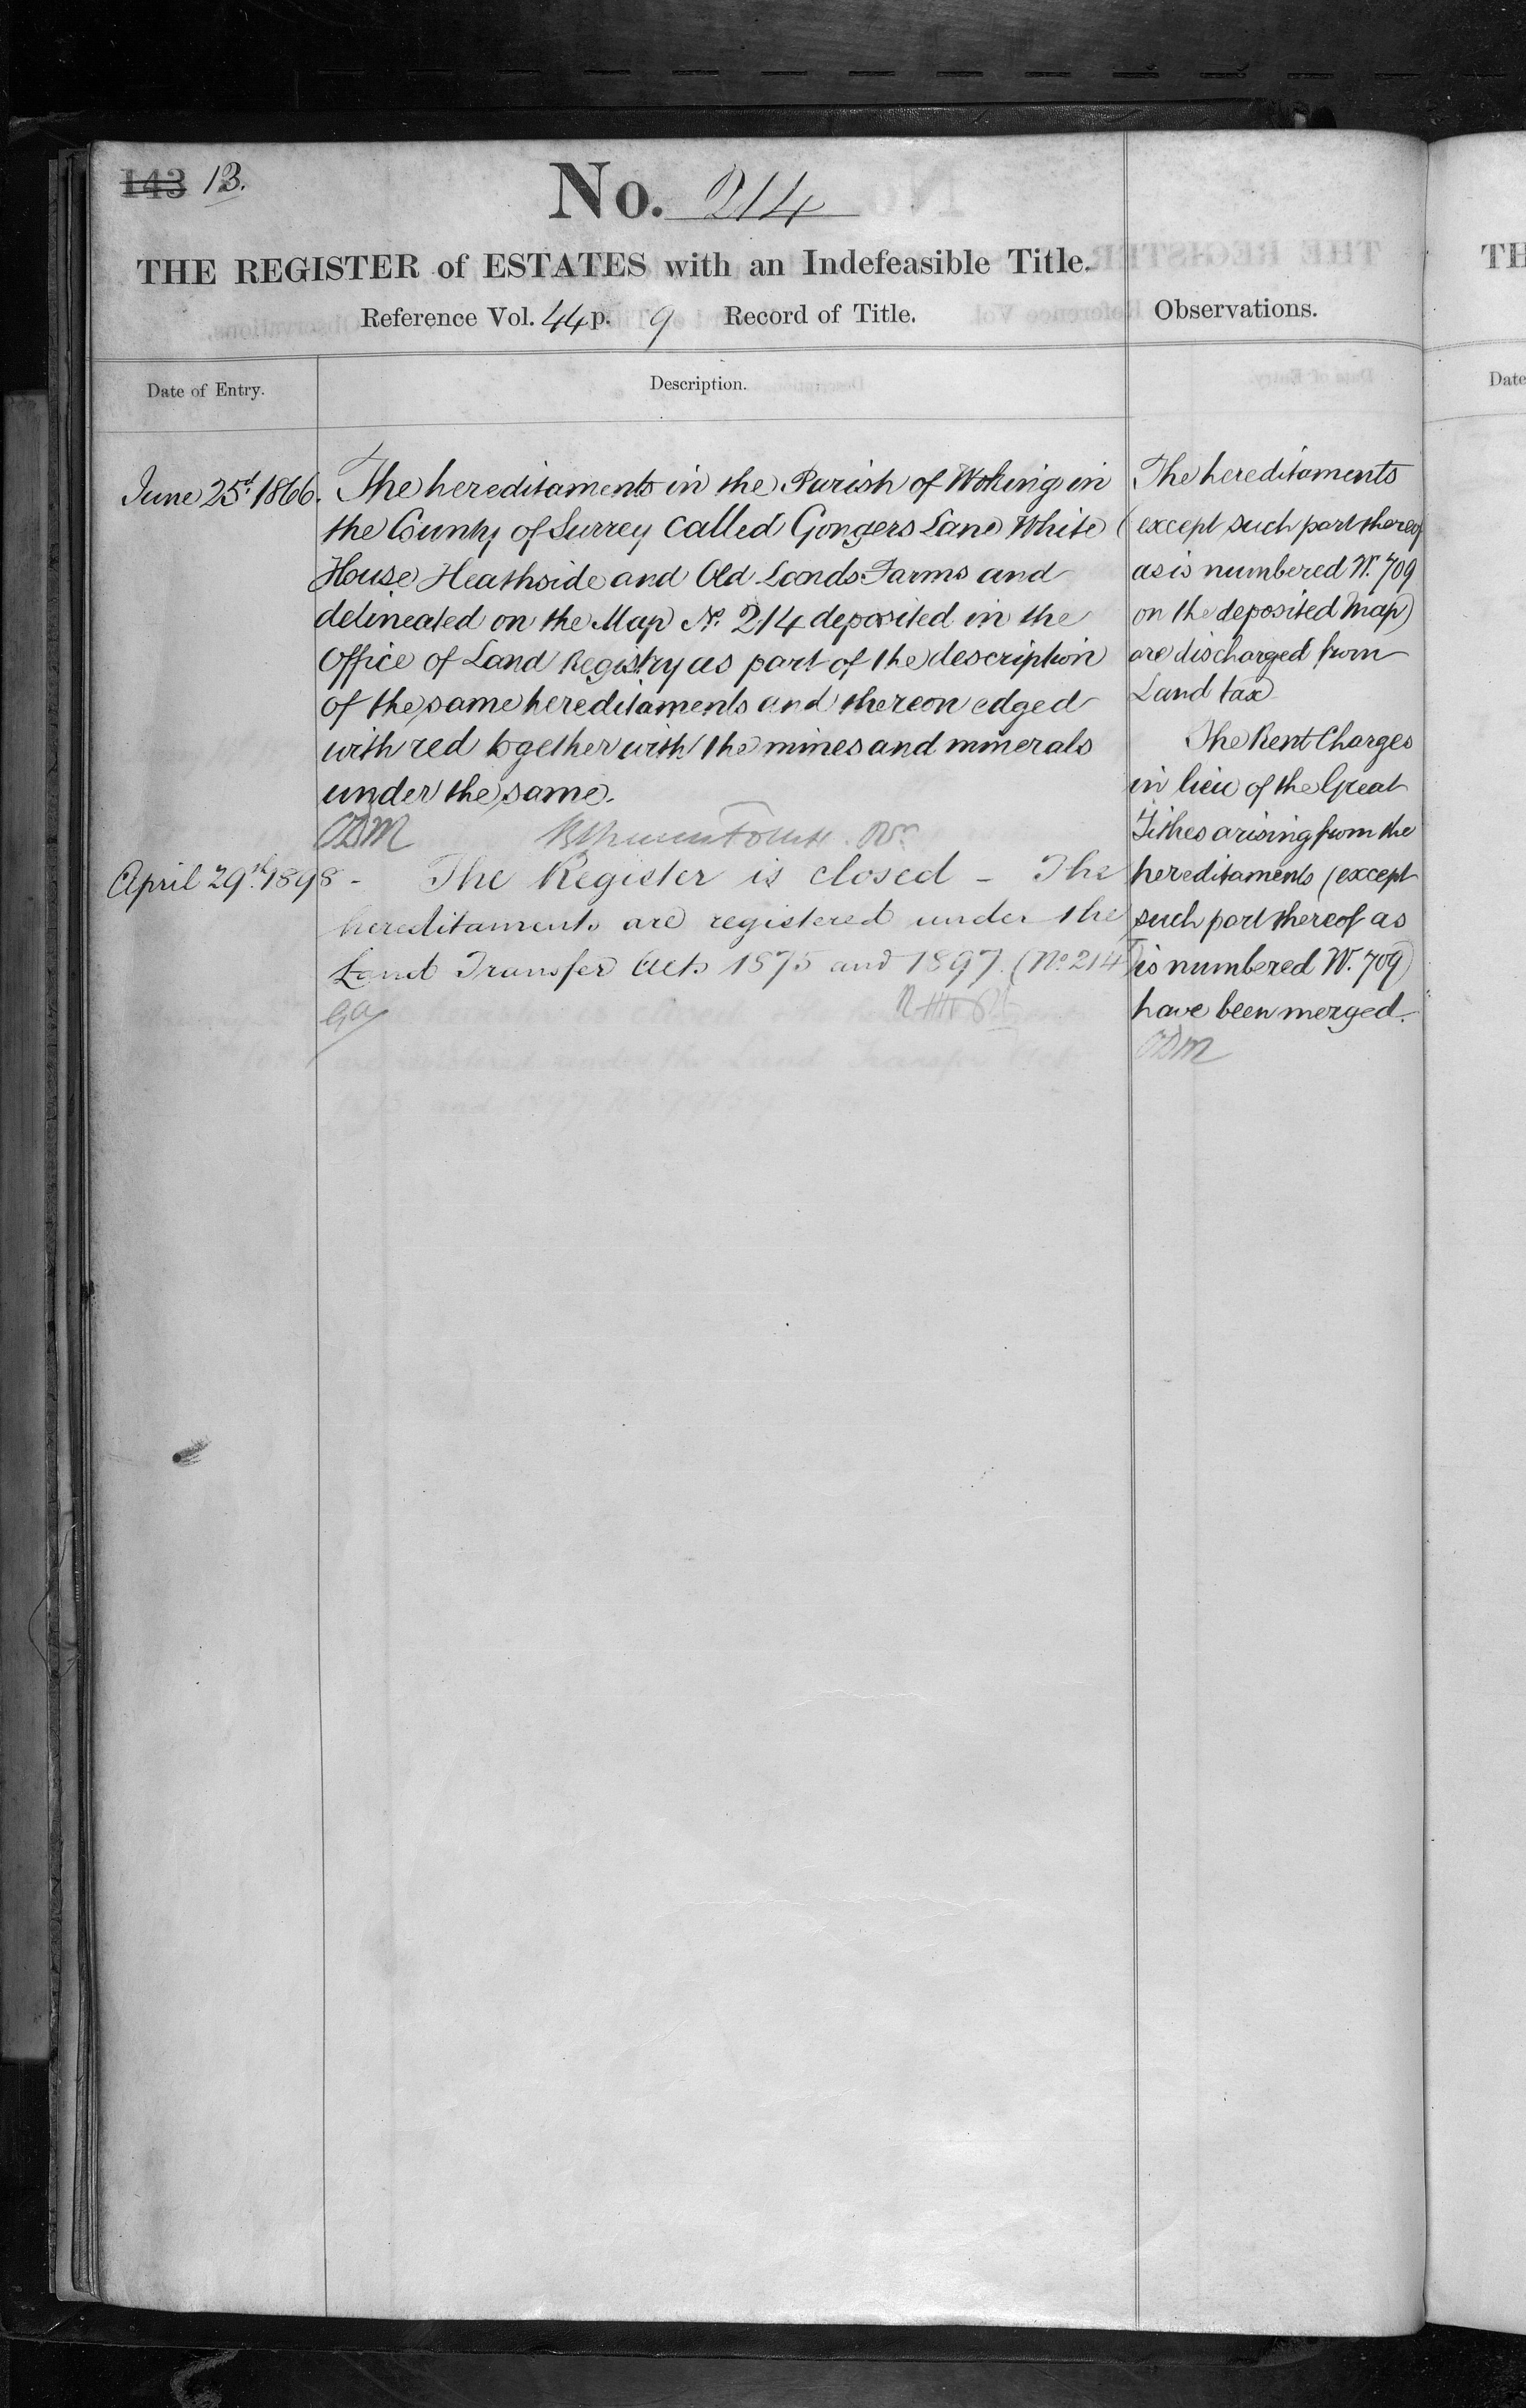 143 13.
No. 214
THE REGISTER of ESTATES with an Indefeasible Title.
Reference Vol. 44 p. 9 Record of Title.
Observations.
Date of Entry.
Description.
June 25th 1866.
The hereditaments in the Parish of Woking in
the County of Surrey called Gongers Lane White
House Heathside and Old Lands Farms and
delineated on the Map No. 214 deposited in the
Office of Land Registry as part of the description
of the same hereditaments and thereon edged
with red together with the mines and minerals
under the same.
ODM
April 29th 1898 -
The Register is closed - The
hereditaments are registered under the
Land Transfer Acts 1875 and 1897. (No. 214)
The hereditaments
(except such part thereof
as is numbered W. 709
on the deposited Map)
are discharged from
Land tax
The Rent Charges
in lieu of the Great
Tithes arising from the
hereditaments (except
such part thereof as
is numbered W. 709)
have been merged.
ODM
TH
Date